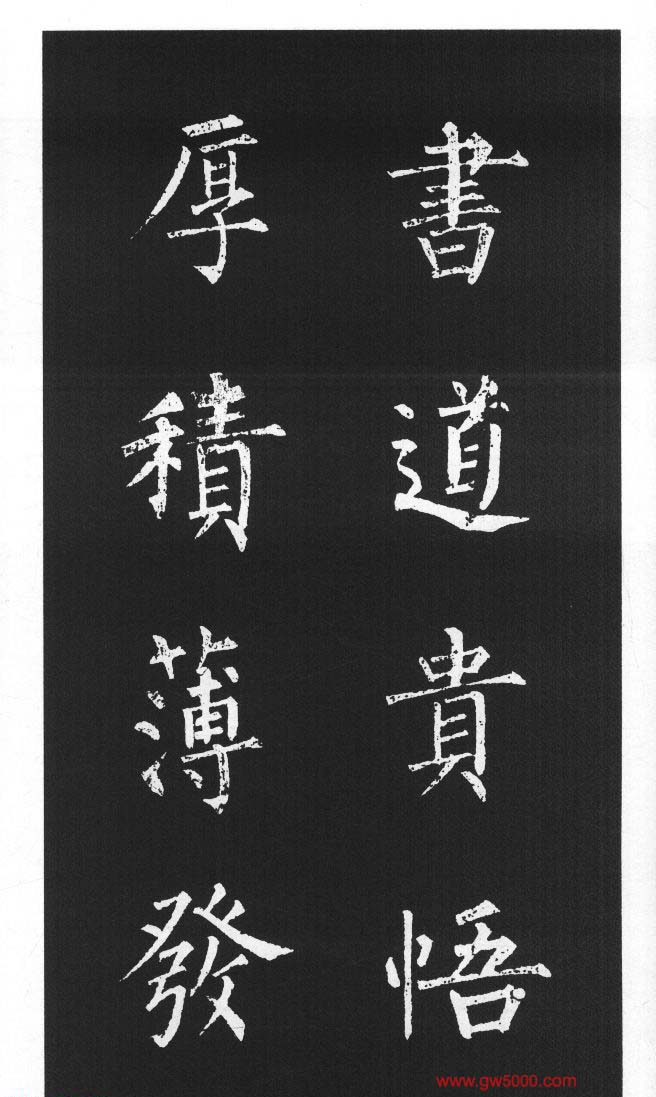 書道貴悟
厚積薄發
www.gw5000.com